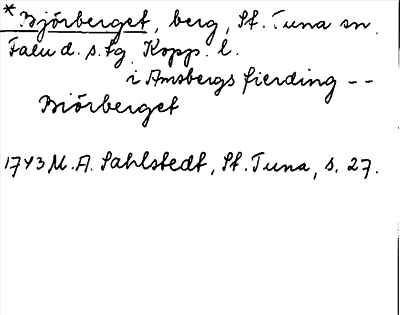 * Bjórberget, berg, St. Tuna sn.
Falu d. s. lg Kopp. l.
i Amsbergs fierding --
Biórberget
1743 M. A. Sahlstedt, St. Tuna, s. 27.